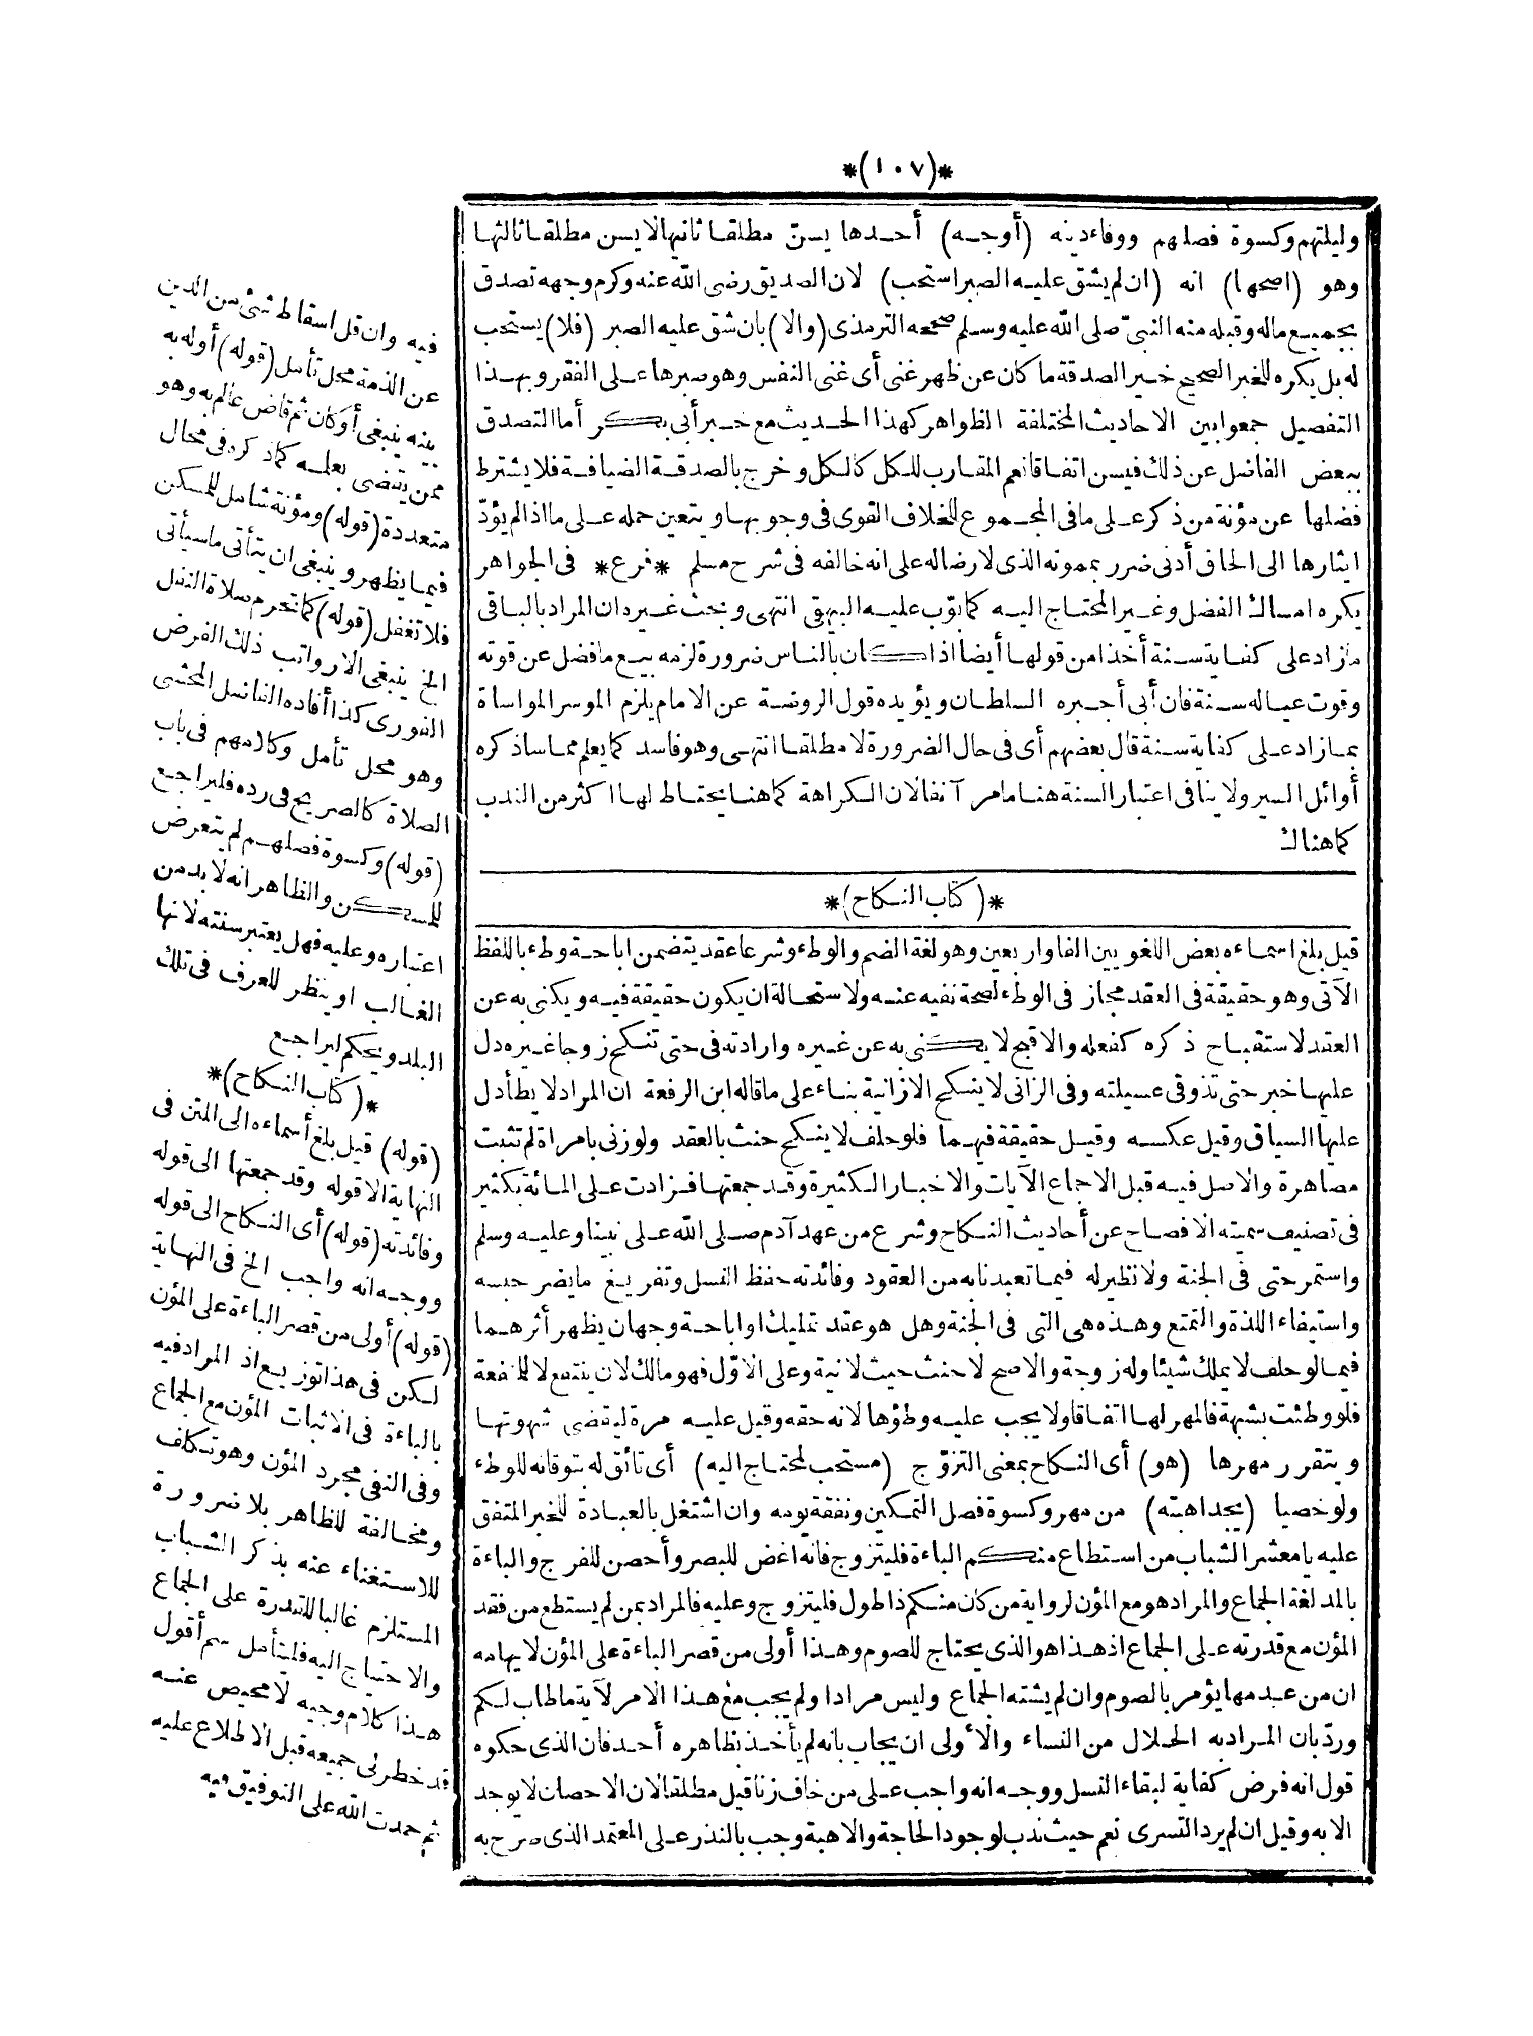 *(١٠٧)*
وليلتهم وكسوة فصلهم ووفاء دينه (أوجه) أحدها يسنّ مطلقا ثانيها لا يسن مطلقا ثالثها
وهو (اصحها) انه (ان لم يشق عليه الصبر استحب) لان الصديق رضى الله عنه وكرم وجهه تصدق
بجميع ماله وقبله منه النبىّ صلى الله عليه وسلم صححه الترمذى (والا) بان شق عليه الصبر (فلا) يستحب
له بل يكره للخبر الصحيح خير الصدقة ما كان عن ظهر غنى أى غنى النفس وهو صبرها على الفقر وبهذا
التفصيل جمعوا بين الاحاديث المختلفة الظواهر كهذا الحديث مع خبر أبى بكر أما التصدق
ببعض الفاضل عن ذلك فيسن اتفاقا نعم المقارب للكل كالكل وخرج بالصدقة الضيافة فلا يشترط
فضلها عن مؤنة من ذكر على ما فى المجموع للخلاف القوى فى وجوبها ويتعين حمله على ما اذا لم يؤدّ
ايثارها الى الحاق أدنى ضرر بممونه الذى لا رضا له على انه خالفه فى شرح مسلم *فرع* فى الجواهر
يكره امساك الفضل وغير المحتاج اليه كما بوّب عليه البيهقى انتهى وبحث غيره ان المراد بالباقى
مازاد على كفاية سنة أخذا من قولها أيضا اذا كان بالناس ضرورة لزمه بيع ما فضل عن قوته
وقوت عياله سنة فان أبى أجبره السلطان ويؤيده قول الروضة عن الامام يلزم الموسر المواساة
بمازاد على كفاية سنة قال بعضهم أى فى حال الضرورة لا مطلقا انتهى وهو فاسد كما يعلم مما سأذكره
أوائل السير ولا ينافى اعتبار السنة هنا ما مر آنفا لان الكراهة كما هنا يحتاط لها اكثر من الندب
كما هناك
*(كتاب النكاح)*
قيل بلغ اسماءه بعض اللغويين الفا واربعين وهو لغة الضم والوطء وشرعا عقد يتضمن اباحة وطء باللفظ
الآتى وهو حقيقة فى العقد مجاز فى الوطء لصحة نفيه عنه ولاستحالة ان يكون حقيقة فيه ويكنى به عن
العقد لاستقباح ذكره كفعله والاقبح لا يكنى به عن غيره وارادته فى حتى تنكح زوجا غيره دل
عليها خبر حتى تذوقى عسيلته وفى الزانى لا ينكح الا زانية بناء على ما قاله ابن الرفعة ان المراد لا يطأ دل
عليها السياق وقيل عكسه وقيل حقيقة فيهما فلو حلف لا ينكح حنث بالعقد ولو زنى بامراة لم تثبت
مصاهرة والاصل فيه قبل الاجماع الآيات والاخبار الكثيرة وقد جمعتها فزادت على المائة بكثير
فى تصنيف سميته الافصاح عن أحاديث النكاح وشرع من عهد آدم صلى الله على نبينا وعليه وسلم
واستمر حتى فى الجنة ولا نظير له فيما تعبدنا به من العقود وفائدته حفظ النسل وتفريغ ما يضر حبسه
واستيفاء اللذة والتمتع وهذه هى التى فى الجنة وهل هو عقد تمليك او اباحة وجهان يظهر أثرهما
فيما لو حلف لا يملك شيئا وله زوجة والاصح لا حنث حيث لا نية وعلى الاوّل فهو مالك لان ينتفع لا للمنفعة
فلو وطئت بشبهة فالمهر لها اتفاقا ولا يجب عليه وطؤها لانه حقه وقيل عليه مرة ليقضى شهوتها
ويتقرر مهرها (هو) أى النكاح بمعنى التزوّج (مستحب لمحتاج اليه) أى تائق له بتوقانه للوطء
ولو خصيا (يجد اهبته) من مهر وكسوة فصل التمكين ونفقة يومه وان اشتغل بالعبادة للخبر المتفق
عليه يا معشر الشباب من استطاع منكم الباءة فليتزوج فانه اغض للبصر وأحصن للفرج والباءة
بالمد لغة الجماع والمراد هو مع المؤن لرواية من كان منكم ذا طول فليتزوج وعليه فالمراد بمن لم يستطع من فقد
المؤن مع قدرته على الجماع اذ هذا هو الذى يحتاج للصوم وهذا أولى من قصر الباءة على المؤن لايهامه
ان من عدمها يؤمر بالصوم وان لم يشته الجماع وليس مرادا ولم يجب مع هذا الامر لآية ما طاب لكم
وردّ بان المراد به الحلال من النساء والأولى ان يجاب بانه لم يأخذ بظاهره أحد فان الذى حكوه
قول انه فرض كفاية لبقاء النسل ووجه انه واجب على من خاف زنا قيل مطلقا لان الاحصان لا يوجد
الا به وقيل ان لم يرد التسرى نعم حيث ندب لوجود الحاجة والاهبة وجب بالنذر على المعتمد الذى صرح به
فيه وان قل اسقاط شئ من الدين
عن الذمة محل تأمل (قوله) أو له به
بينه ينبغى أو كان ثم قاض عالم به وهو
ممن يقضى بعلمه كما ذكره فى محال
متعددة (قوله) ومؤنة شامل للمسكن
فيما يظهر وينبغى ان يتأتى ما سيأتى
فلا تغفل (قوله) كما تحرم صلاة النفل
الخ ينبغى الا رواتب ذلك الفرض
الفورى كذا أفاده الفاضل المحشى
وهو محل تأمل وكلامهم فى باب
الصلاة كالصريح فى رده فليراجع
(قوله) وكسوة فصلهم لم يتعرض
للمسكن والظاهر انه لا بد من
اعتباره وعليه فهل يعتبر سنته لانها
الغالب او ينظر للعرف فى تلك
البلد ويحكم ليراجع
*(كتاب النكاح)*
(قوله) قيل بلغ أسماءه الى المتن فى
النهاية الا قوله وقد جمعتها الى قوله
وفائدته (قوله) أى النكاح الى قوله
ووجه انه واجب الخ فى النهاية
(قوله) أولى من قصر الباءة على المؤن
لكن فى هذا توزيع اذ المراد فيه
بالباءة فى الاثبات المؤن مع الجماع
وفى النفى مجرد المؤن وهو تكلف
ومخالفة للظاهر بلا ضرورة
للاستغناء عنه بذكر الشباب
المستلزم غالبا للقدرة على الجماع
والاحتياج اليه فليتأمل سم أقول
هذا كلام وجيه لا محيص عنه
قد خطر لى جميعه قبل الاطلاع عليه
ثم حمدت الله على التوفيق فيه